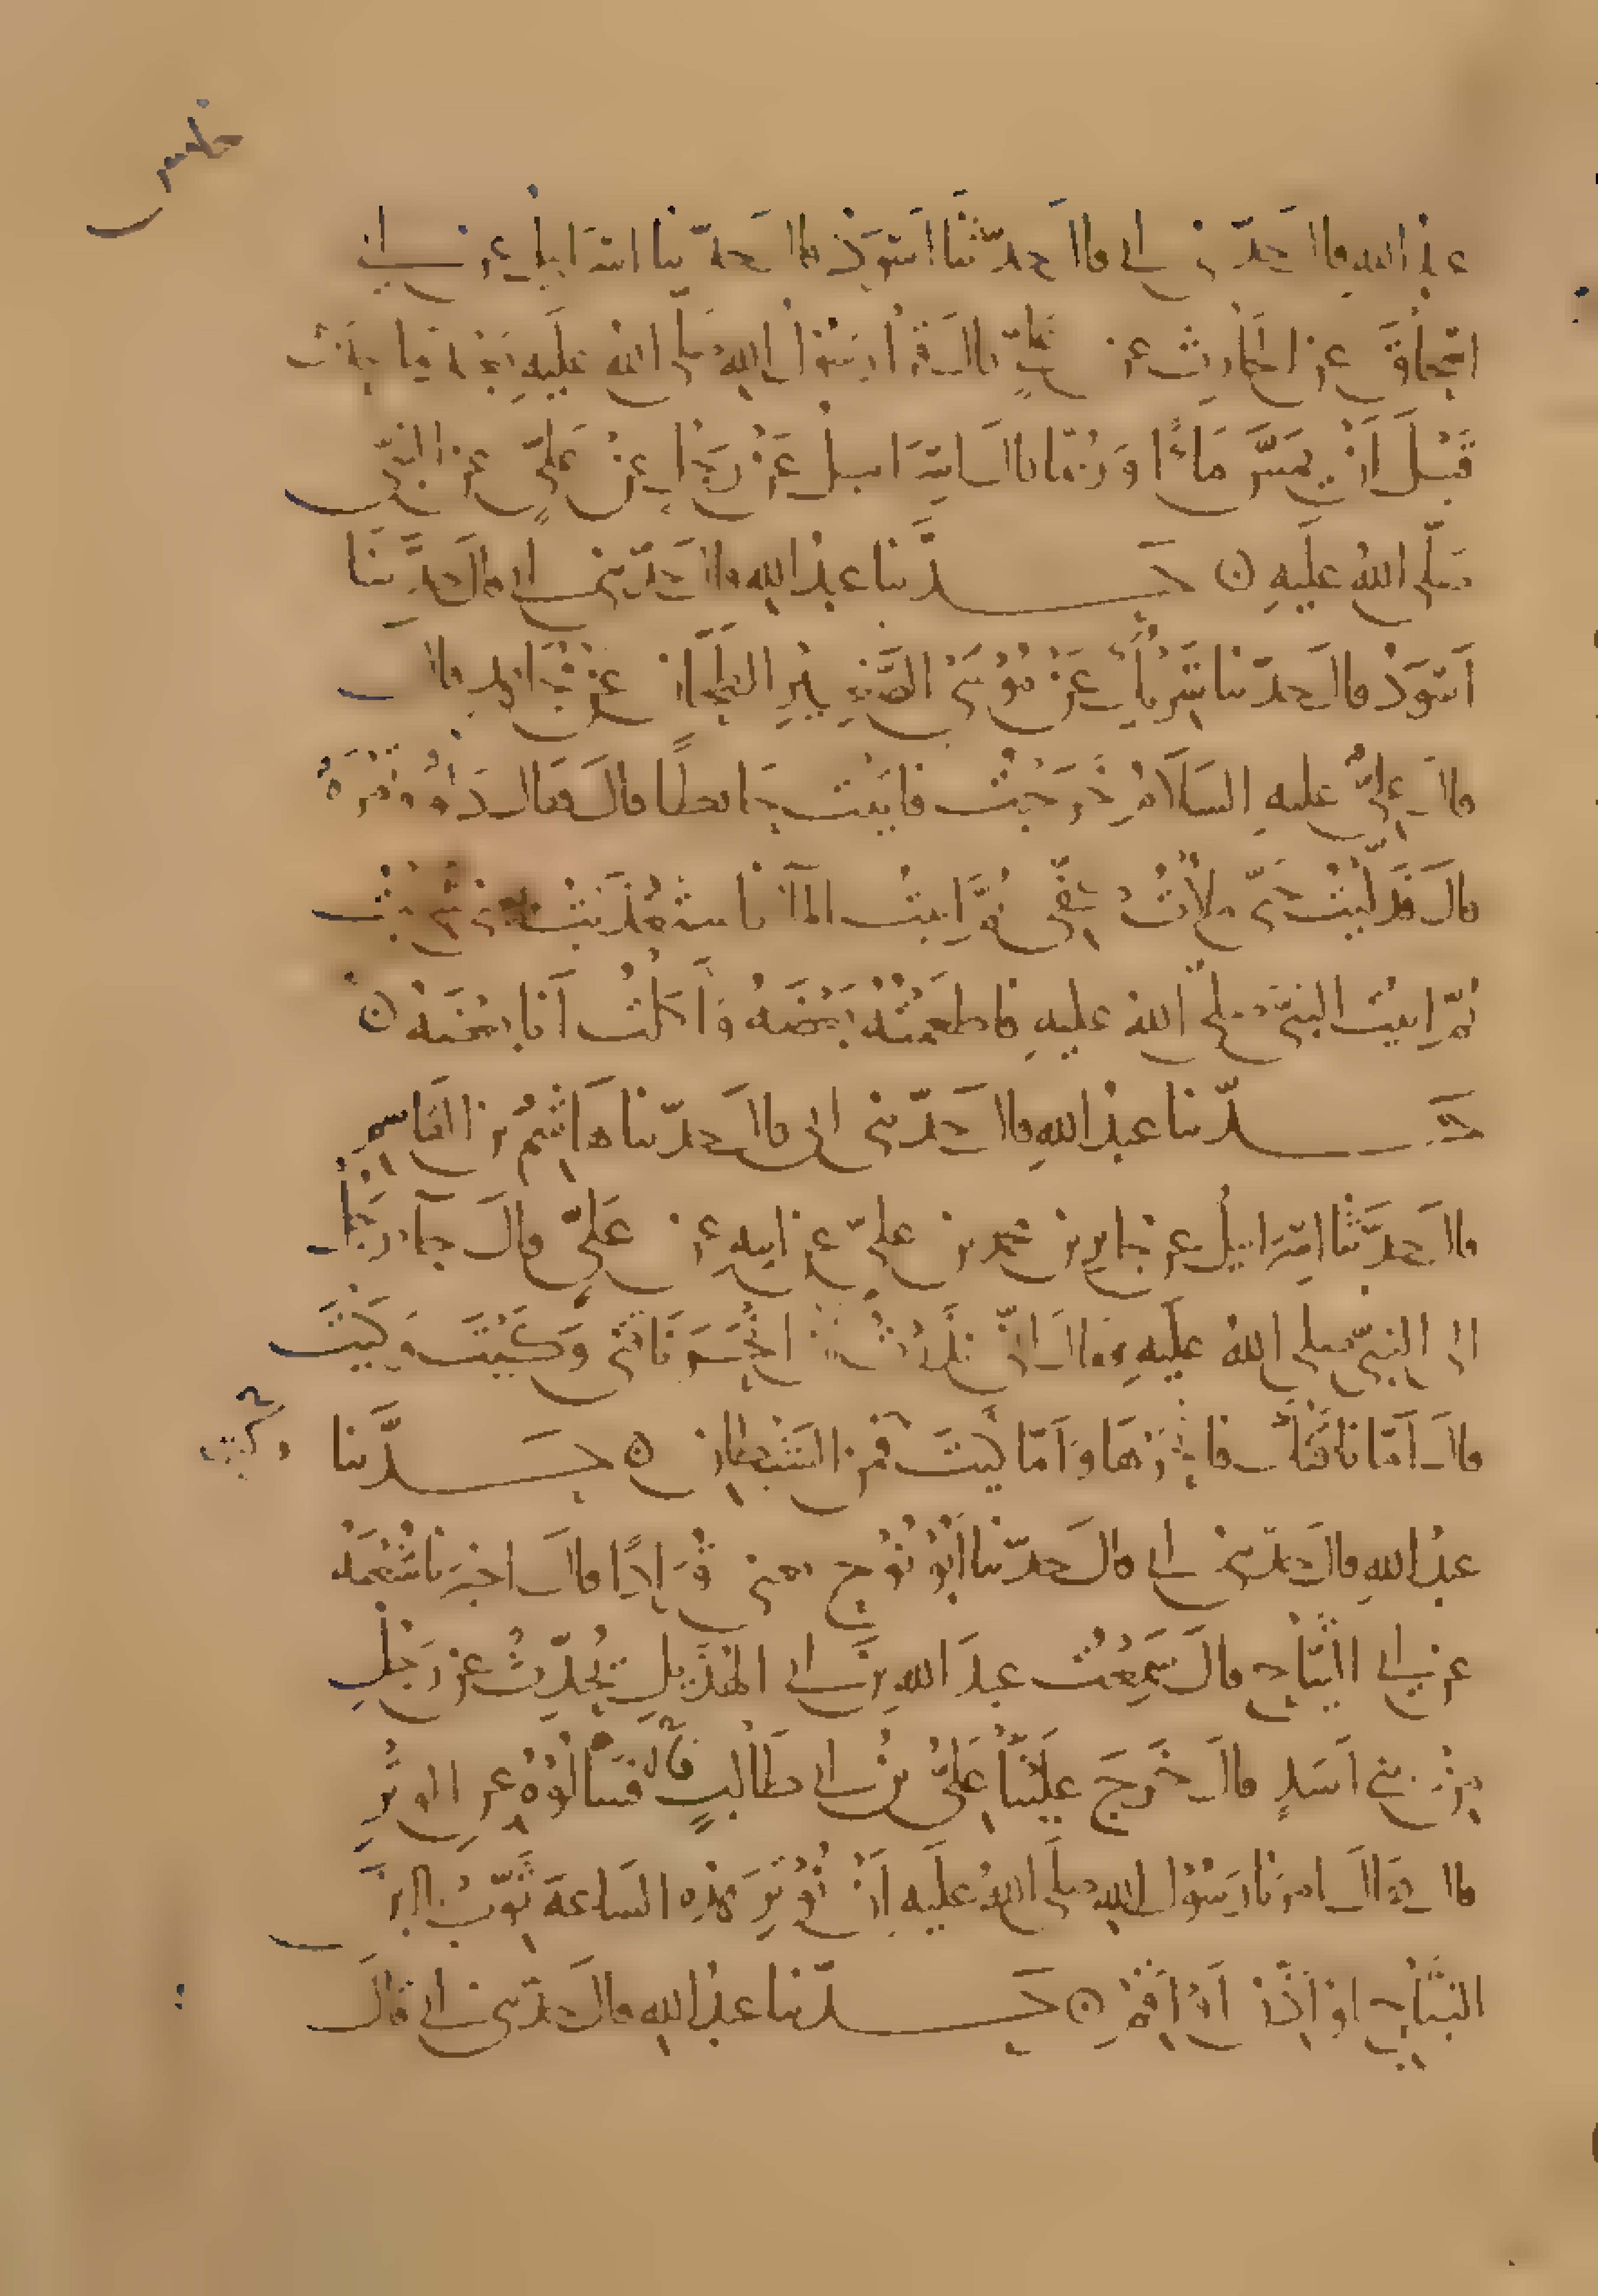 عبد الله قال حدثني ابي قال حدثنا اسود قال حدثنا اسرائيل عن ابي
اسحاق عن الحارث عن علي قال قرأ رسول الله صلى الله عليه بعد ما
قبل ان يمس ماءً وربما قال اسرائيل عن رجل عن علي عن النبي
صلى الله عليه ن حدثنا عبد الله قال حدثني ابي قال حدثنا
اسود قال حدثنا شريك عن موسى الصغير الطحان عن مجاهد قال
قال علي عليه السلام خرجت فاتيت حائطا قال فقال دلو وتمرة
قال فدليت حتى ملأت كفي ثم اتيت الماء فاستعذبت يعني شربت
ثم اتيت النبي صلى الله عليه فاطعمته بعضه وأكلت أنا بعضه ن
حدثنا عبد الله قال حدثني ابي قال حدثنا هاشم بن القاسم
قال حدثنا اسرائيل عن جابر عن محمد بن علي عن ابيه عن علي قال جاء رجل
الى النبي صلى الله عليه فقال اني نذرت ان انحر ناقتي وكيت وكيت
قال أما ناقتك فانحرها وأما كيت فمن الشيطان ن حدثنا
وكيت
عبد الله قال حدثني ابي قال حدثنا أبو نوح يعني قرادًا قال اخبرنا شعبة
عن ابي التياح قال سمعت عبد الله بن ابي الهذيل يحدث عن رجل
من بني أسد قال خرج علينا علي بن ابي طالب قال فسألوه عن الوتر
قال فقال امرنا رسول الله صلى الله عليه أن نوتر هذه الساعة ثوب يا ابن
التياح او أذن أو أقم ن حدثنا عبد الله قال حدثني ابي قال